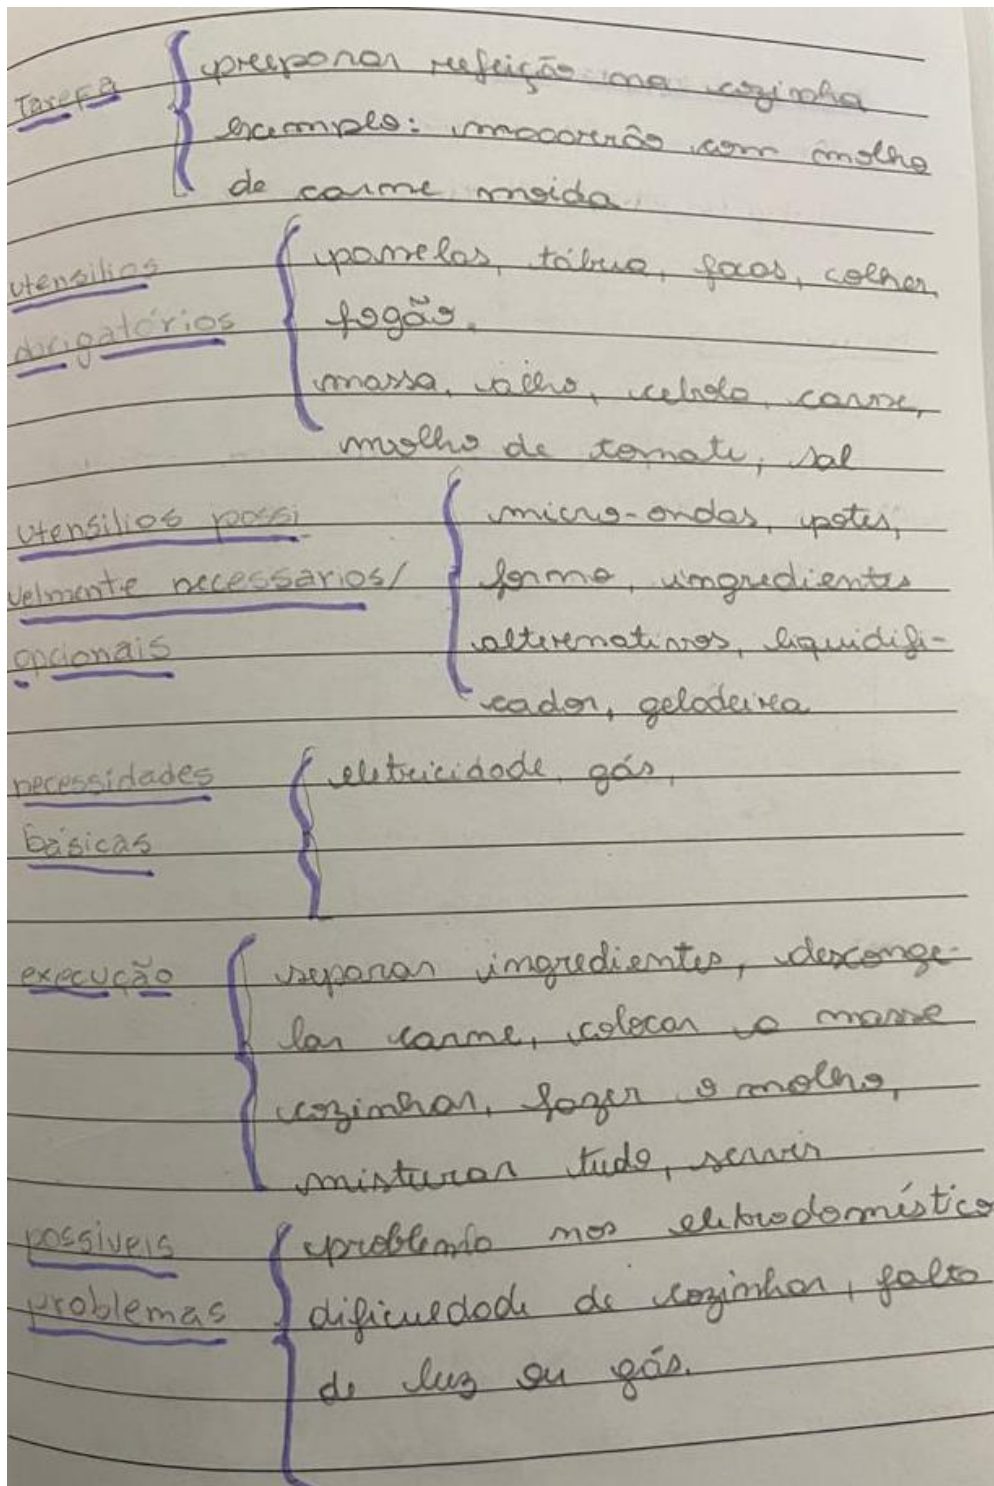 Tarefa
preeponar refeição na cozinha
exemplo: macarrão com molho
de carne moida
utensilios
obrigatórios
panelas, tábua, facas, colher,
fogão.
massa, alho, cebola, carne,
molho de tomate, sal
utensilios possi
velmente necessarios/
opcionais
micro-ondas, potes,
forma, ingredientes
alternativos, liquidifi-
cador, geladeira
necessidades
básicas
eletricidade, gás,
execução
separar ingredientes, desconge-
lar carne, colocar a massa
cozinhar, fazer o molho,
misturar tudo, servir
possiveis
problemas
problema nos eletrodoméstico
dificuldade de cozinhar, falta
de luz ou gás.